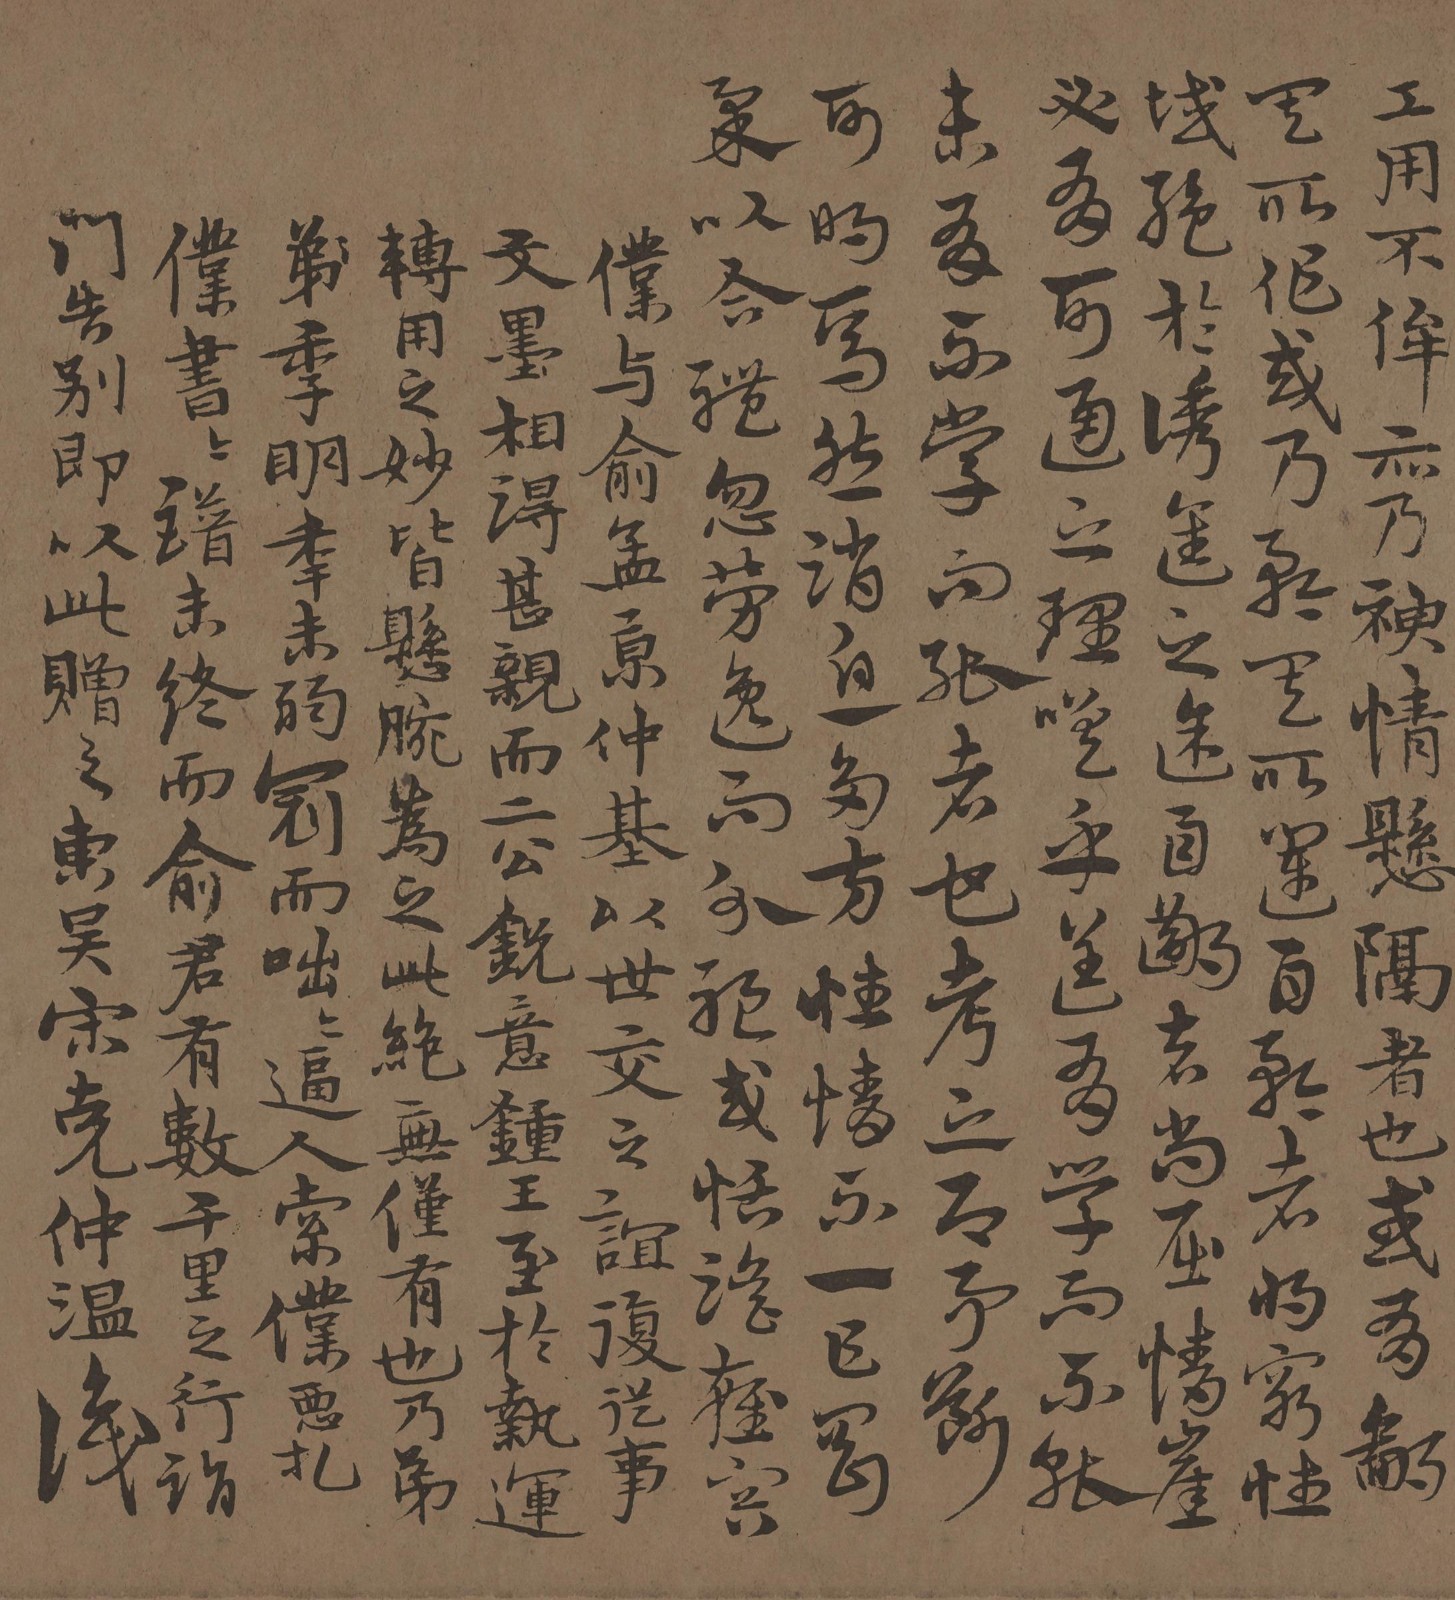 工用不侔亦乃神情懸隔者也或有鄙
其所作或乃矜其所運自矜者將窮性
域絕於誘進之途自鄙者尚屈情崖
必有可通之理嗟乎蓋有學而不能
未有不學而能者也考之即事斷
可明焉然消息多方性情不一乍剛
柔以合體忽勞逸而分軀或恬澹雍容
僕与俞孟京仲基以世交之誼復從事
文墨相得甚親而二公銳意鍾王至於執運
轉用之妙皆懸腕為之此絕無僅有也乃弟
弟季明年未弱冠而咄〻逼人索僕惡札
僕書〻譜未終而俞君有數千里之行詣
門告別即以此贈之東吳宋克仲溫識